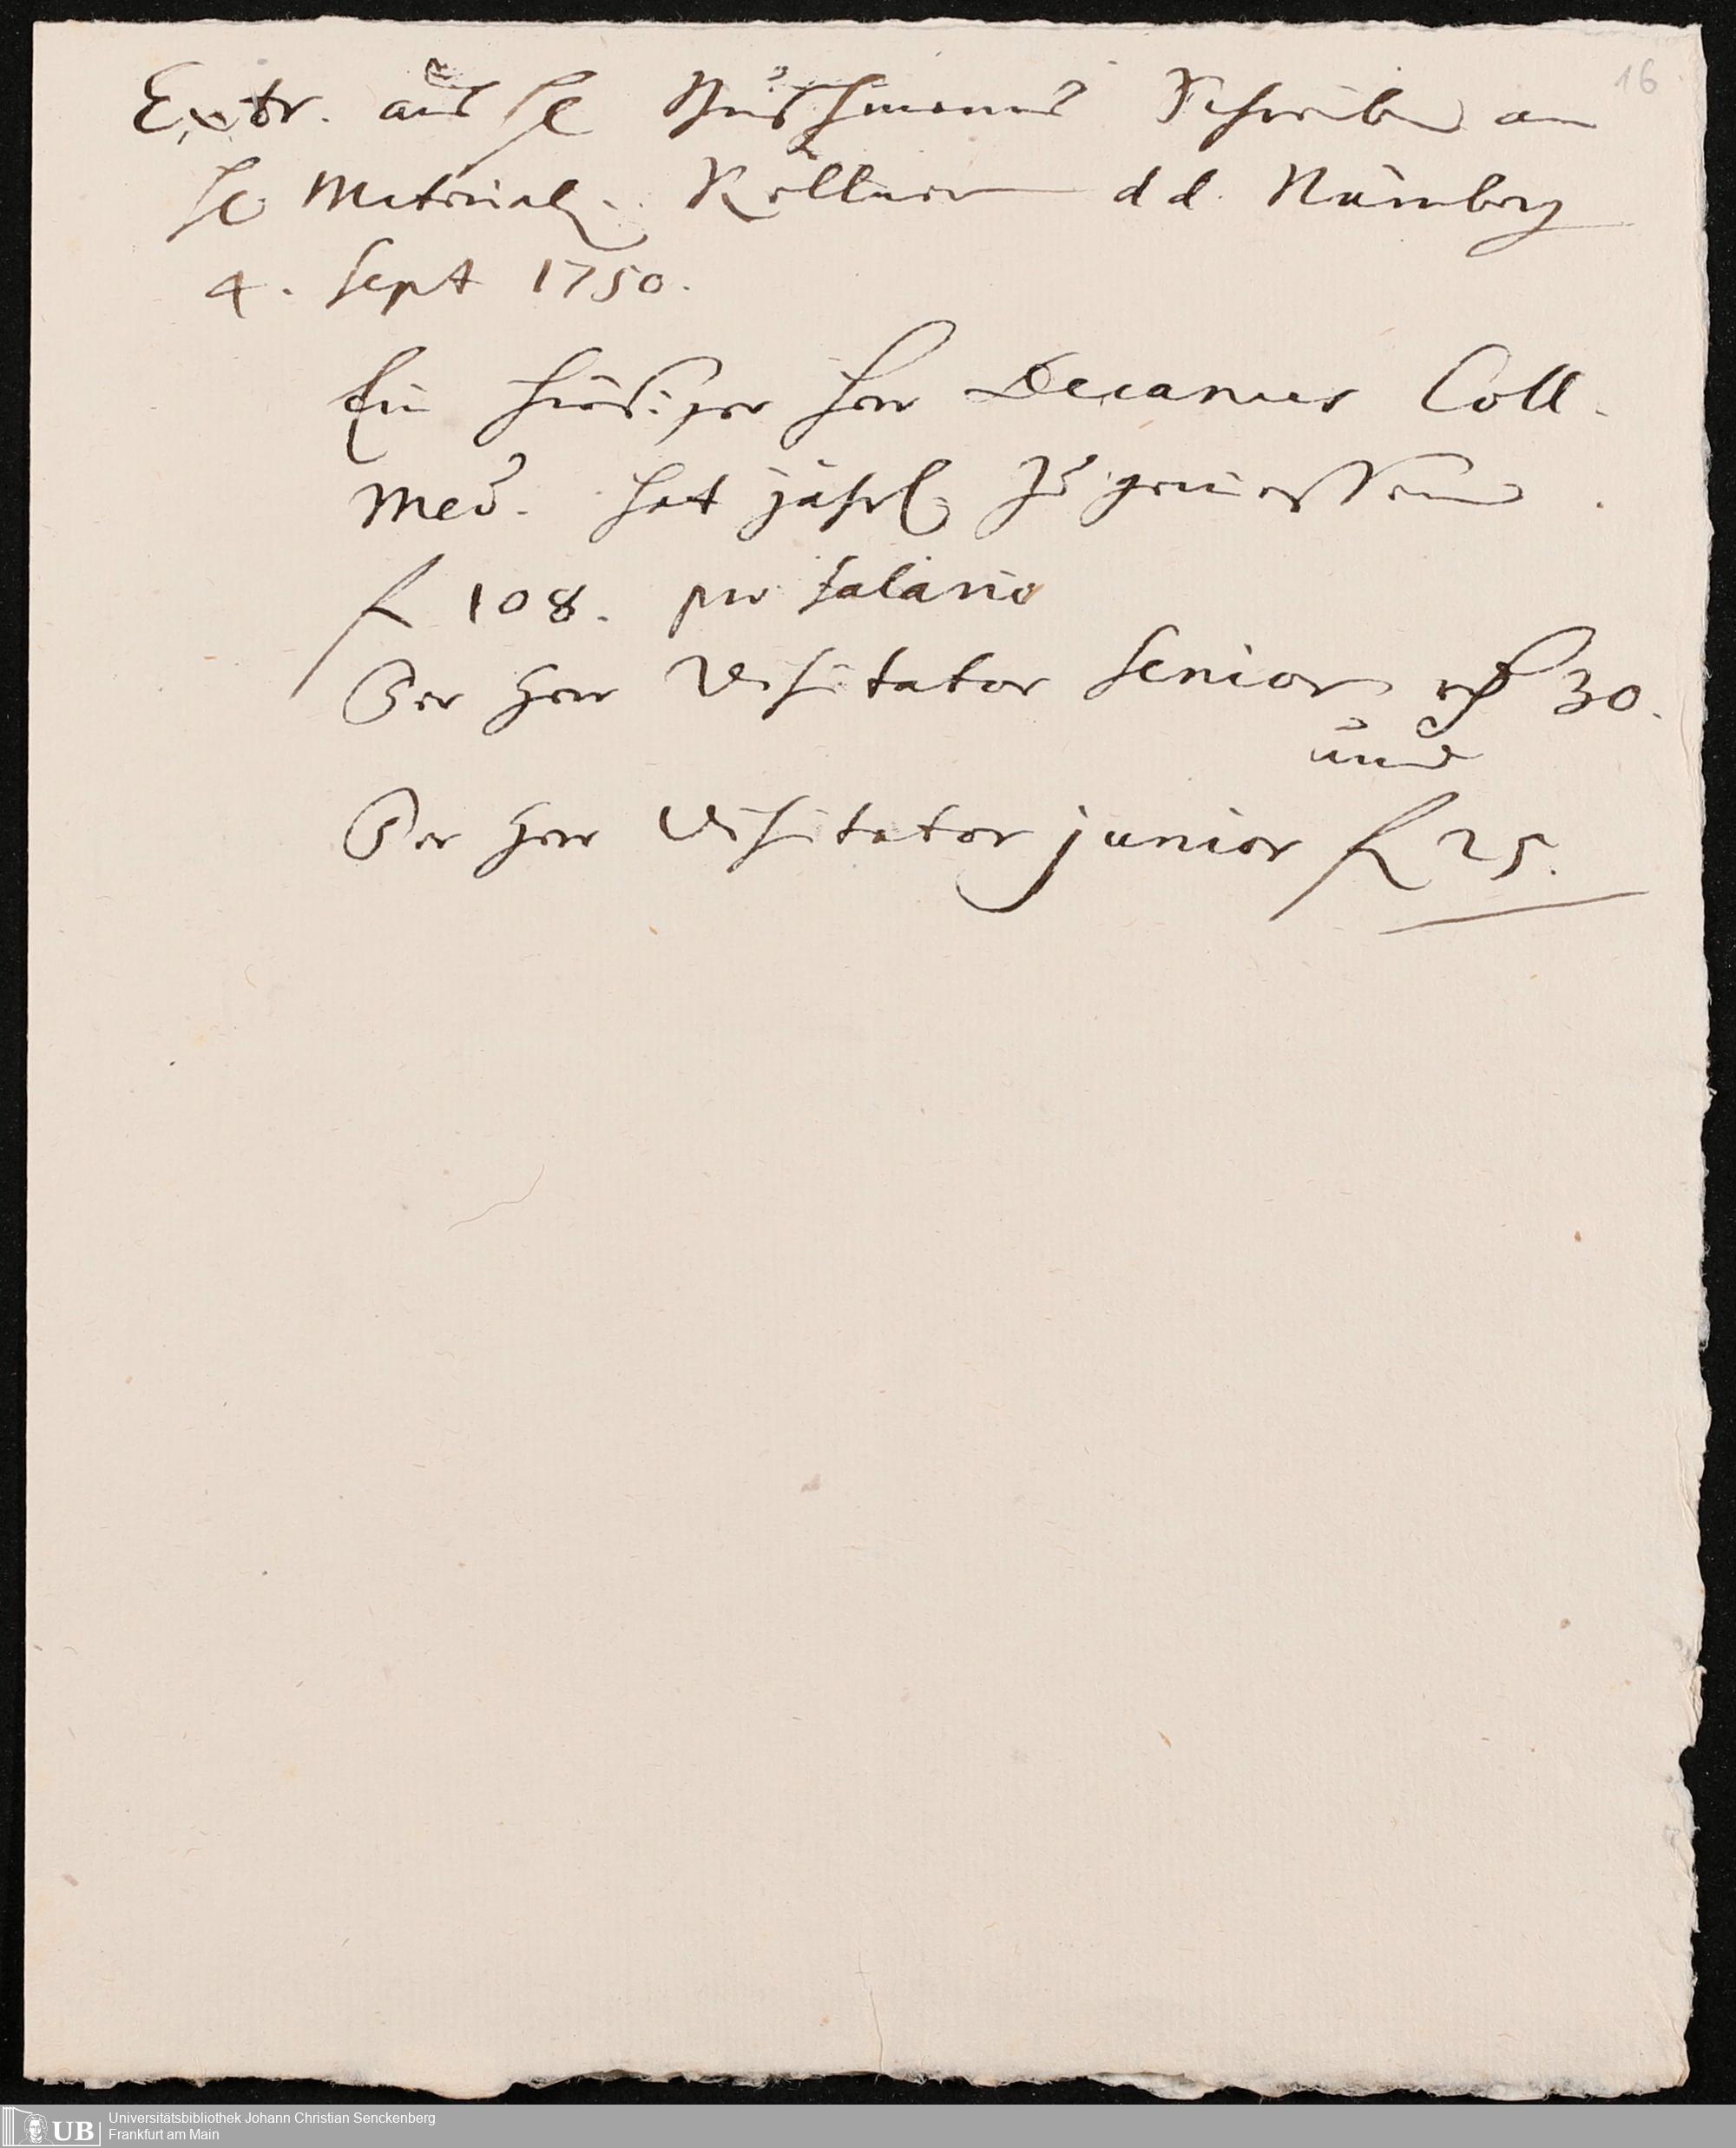 16
Extr. aus H Schreiben an
H Material. Köllner dd. Nürnberg
4. Sept 1750.
Ein hiesiger Herr Decanus Coll.
Med. hat jährl. zu geniessen
f 108. pro Salario
Der Herr Visitator Senior f 30.
und
Der Herr Visitator junior f 25.
UB Universitätsbibliothek Johann Christian Senckenberg
Frankfurt am Main